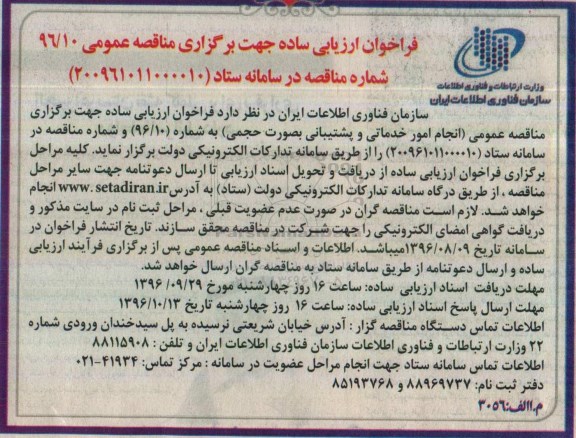 فراخوان ارزیابی ساده جهت برگزاری مناقصه عمومی ۹۶/۱۰
شماره مناقصه در سامانه ستاد (۲۰۰۹۶۱۰۱۱۰۰۰۰۱۰)
وزارت ارتباطات و فناوری اطلاعات
سازمان فناوری اطلاعات ایران
سازمان فناوری اطلاعات ایران در نظر دارد فراخوان ارزیابی ساده جهت برگزاری
مناقصه عمومی (انجام امور خدماتی و پشتیبانی بصورت حجمی) به شماره (۹۶/۱۰) و شماره مناقصه در
سامانه ستاد (۲۰۰۹۶۱۰۱۱۰۰۰۰۱۰) را از طریق سامانه تدارکات الکترونیکی دولت برگزار نماید. کلیه مراحل
برگزاری فراخوان ارزیابی ساده از دریافت و تحویل اسناد ارزیابی تا ارسال دعوتنامه جهت سایر مراحل
مناقصه ، از طریق درگاه سامانه تدارکات الکترونیکی دولت (ستاد) به آدرس www.setadiran.ir انجام
خواهد شد. لازم است مناقصه گران در صورت عدم عضویت قبلی ، مراحل ثبت نام در سایت مذکور و
دریافت گواهی امضای الکترونیکی را جهت شرکت در مناقصه محقق سازند. تاریخ انتشار فراخوان در
سامانه تاریخ ۱۳۹۶/۰۸/۰۹میباشد. اطلاعات و اسناد مناقصه عمومی پس از برگزاری فرآیند ارزیابی
ساده و ارسال دعوتنامه از طریق سامانه ستاد به مناقصه گران ارسال خواهد شد.
مهلت دریافت اسناد ارزیابی ساده: ساعت ۱۶ روز چهارشنبه مورخ ۰۹/۲۹/ ۱۳۹۶
مهلت ارسال پاسخ اسناد ارزیابی ساده: ساعت ۱۶ روز چهارشنبه تاریخ ۱۳۹۶/۱۰/۱۳
اطلاعات تماس دستگاه مناقصه گزار : آدرس خیابان شریعتی نرسیده به پل سیدخندان ورودی شماره
۲۲ وزارت ارتباطات و فناوری اطلاعات سازمان فناوری اطلاعات ایران و تلفن : ۸۸۱۱۵۹۰۸
اطلاعات تماس سامانه ستاد جهت انجام مراحل عضویت در سامانه : مرکز تماس: ۴۱۹۳۴-۰۲۱
دفتر ثبت نام: ۸۸۹۶۹۷۳۷ و ۸۵۱۹۳۷۶۸
م.الف:۳۰۵۶